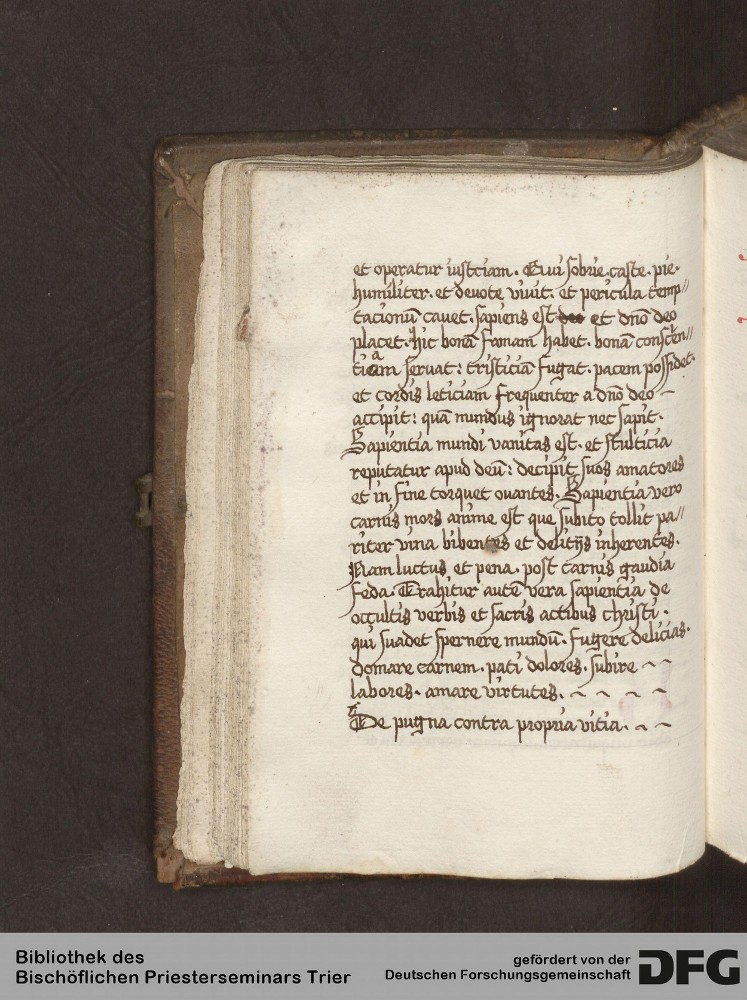 et operatur iustciam. Qui sobrie. caste. pie.
humiliter. et deuote viuit. et pericula temp//
tacionū cauet. sapiens est deo et dño deo
placet. hic bonā famam habet. bonā conscen//
tiam seruat: tristiciā fugat. pacem possidet.
et cordis leticiam frequenter a dño deo ~
accipit: quā mundus ignorat nec sapit.
Sapientia mundi vanitas est. et stulticia
reputatur apud deū: decipit suos amatores
et in fine torquet ouantes. Sapientia vero
carnis mors anime est que subito tollit pa//
riter vina bibentes et delitijs inherentes.
Nam luctus et pena. post carnis gaudia
feda. Trahitur autē vera sapientia de
occultis verbis et sacris actibus christi.
qui suadet spernere mundū. fugere delicias.
domare carnem. pati dolores. subire ~ ~
labores. amare virtutes. ~ ~ ~ ~
De pugna contra propria vitia. ~ ~
Bibliothek des
Bischöflichen Priesterseminars Trier
gefördert von der
Deutschen Forschungsgemeinschaft
DFG